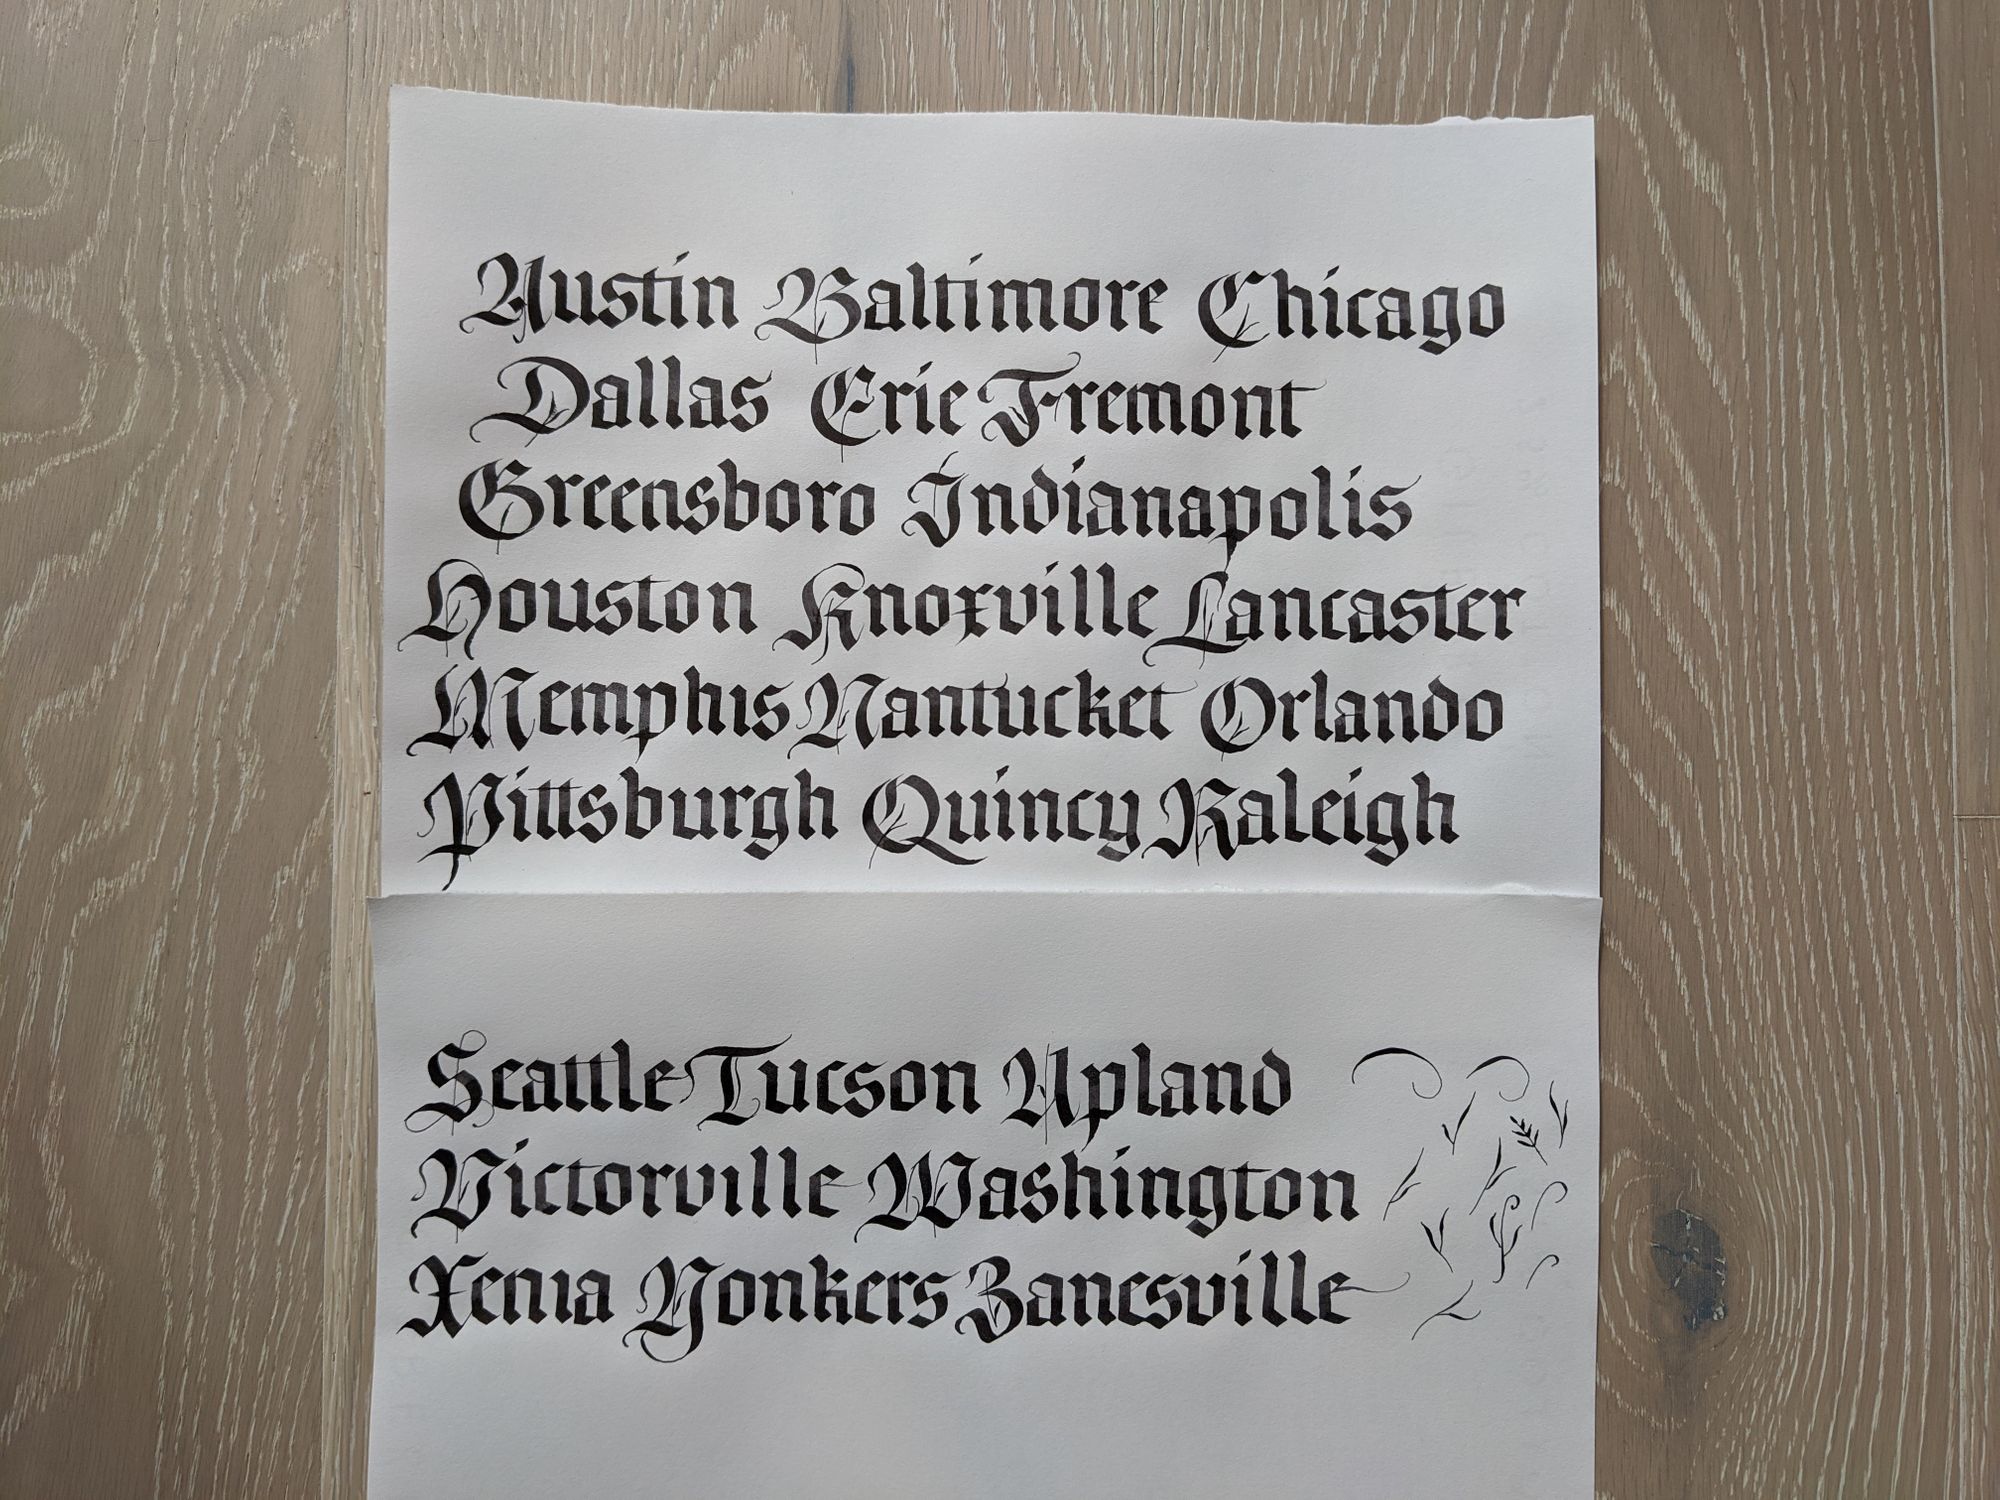 Austin Baltimore Chicago
Dallas Erie Fremont
Greensboro Indianapolis
Houston Knoxville Lancaster
Memphis Nantucket Orlando
Pittsburgh Quincy Raleigh
Seattle Tucson Upland
Victorville Washington
Xenia Yonkers Zanesville